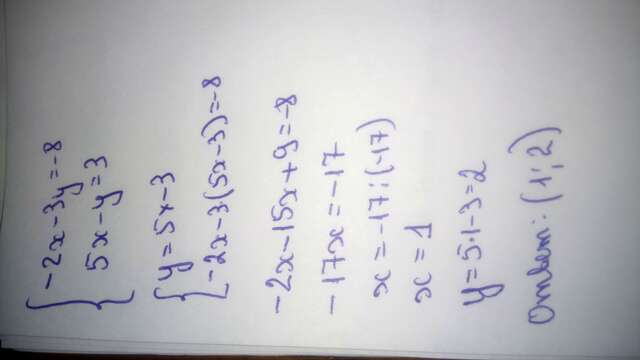 { -2x-3y=-8
5x-y=3
{ y=5x-3
-2x-3(5x-3)=-8
-2x-15x+9=-8
-17x=-17
x=-17:(-17)
x=1
y=5·1-3=2
Ответ: (1; 2)